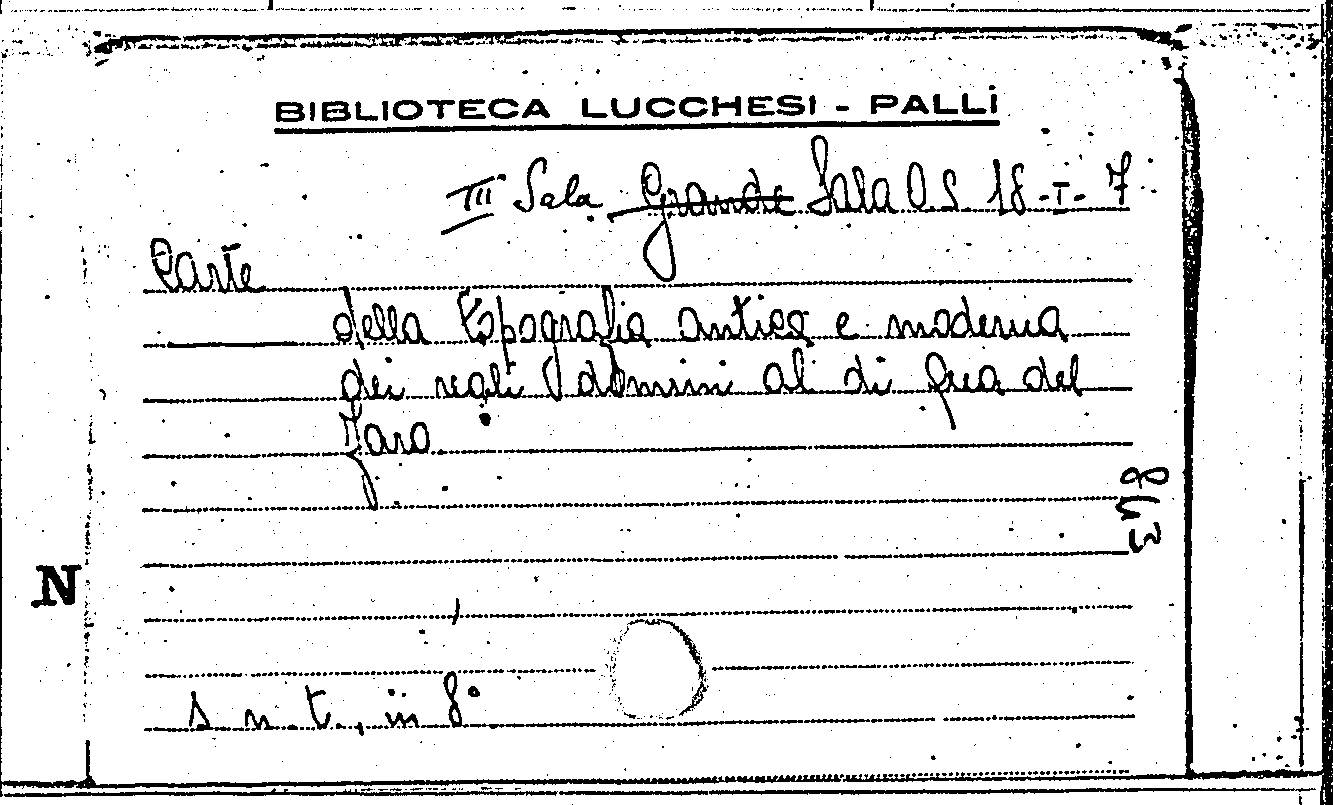 BIBLIOTECA LUCCHESI - PALLI
III Sala Grande Sala O.S 18-I-7
Carte
della topografia antica e moderna
dei regli domini al di qua del
Faro.
N
s n. t., in 8°